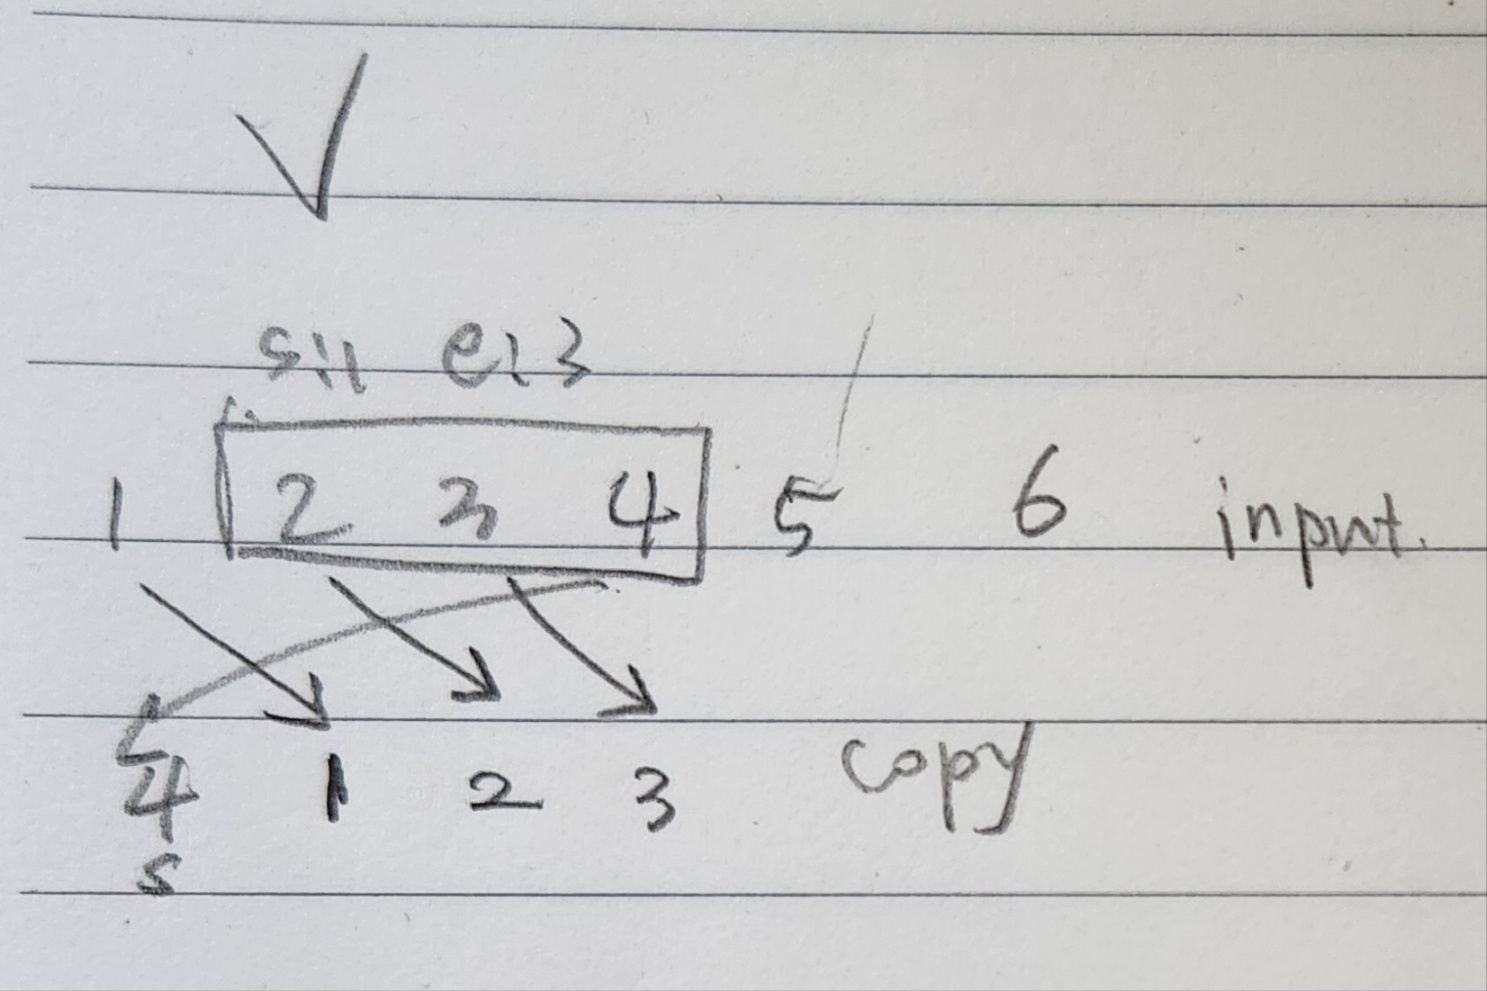 s:1 e:3
1 2 3 4 5 6 input.
4 1 2 3 copy
s